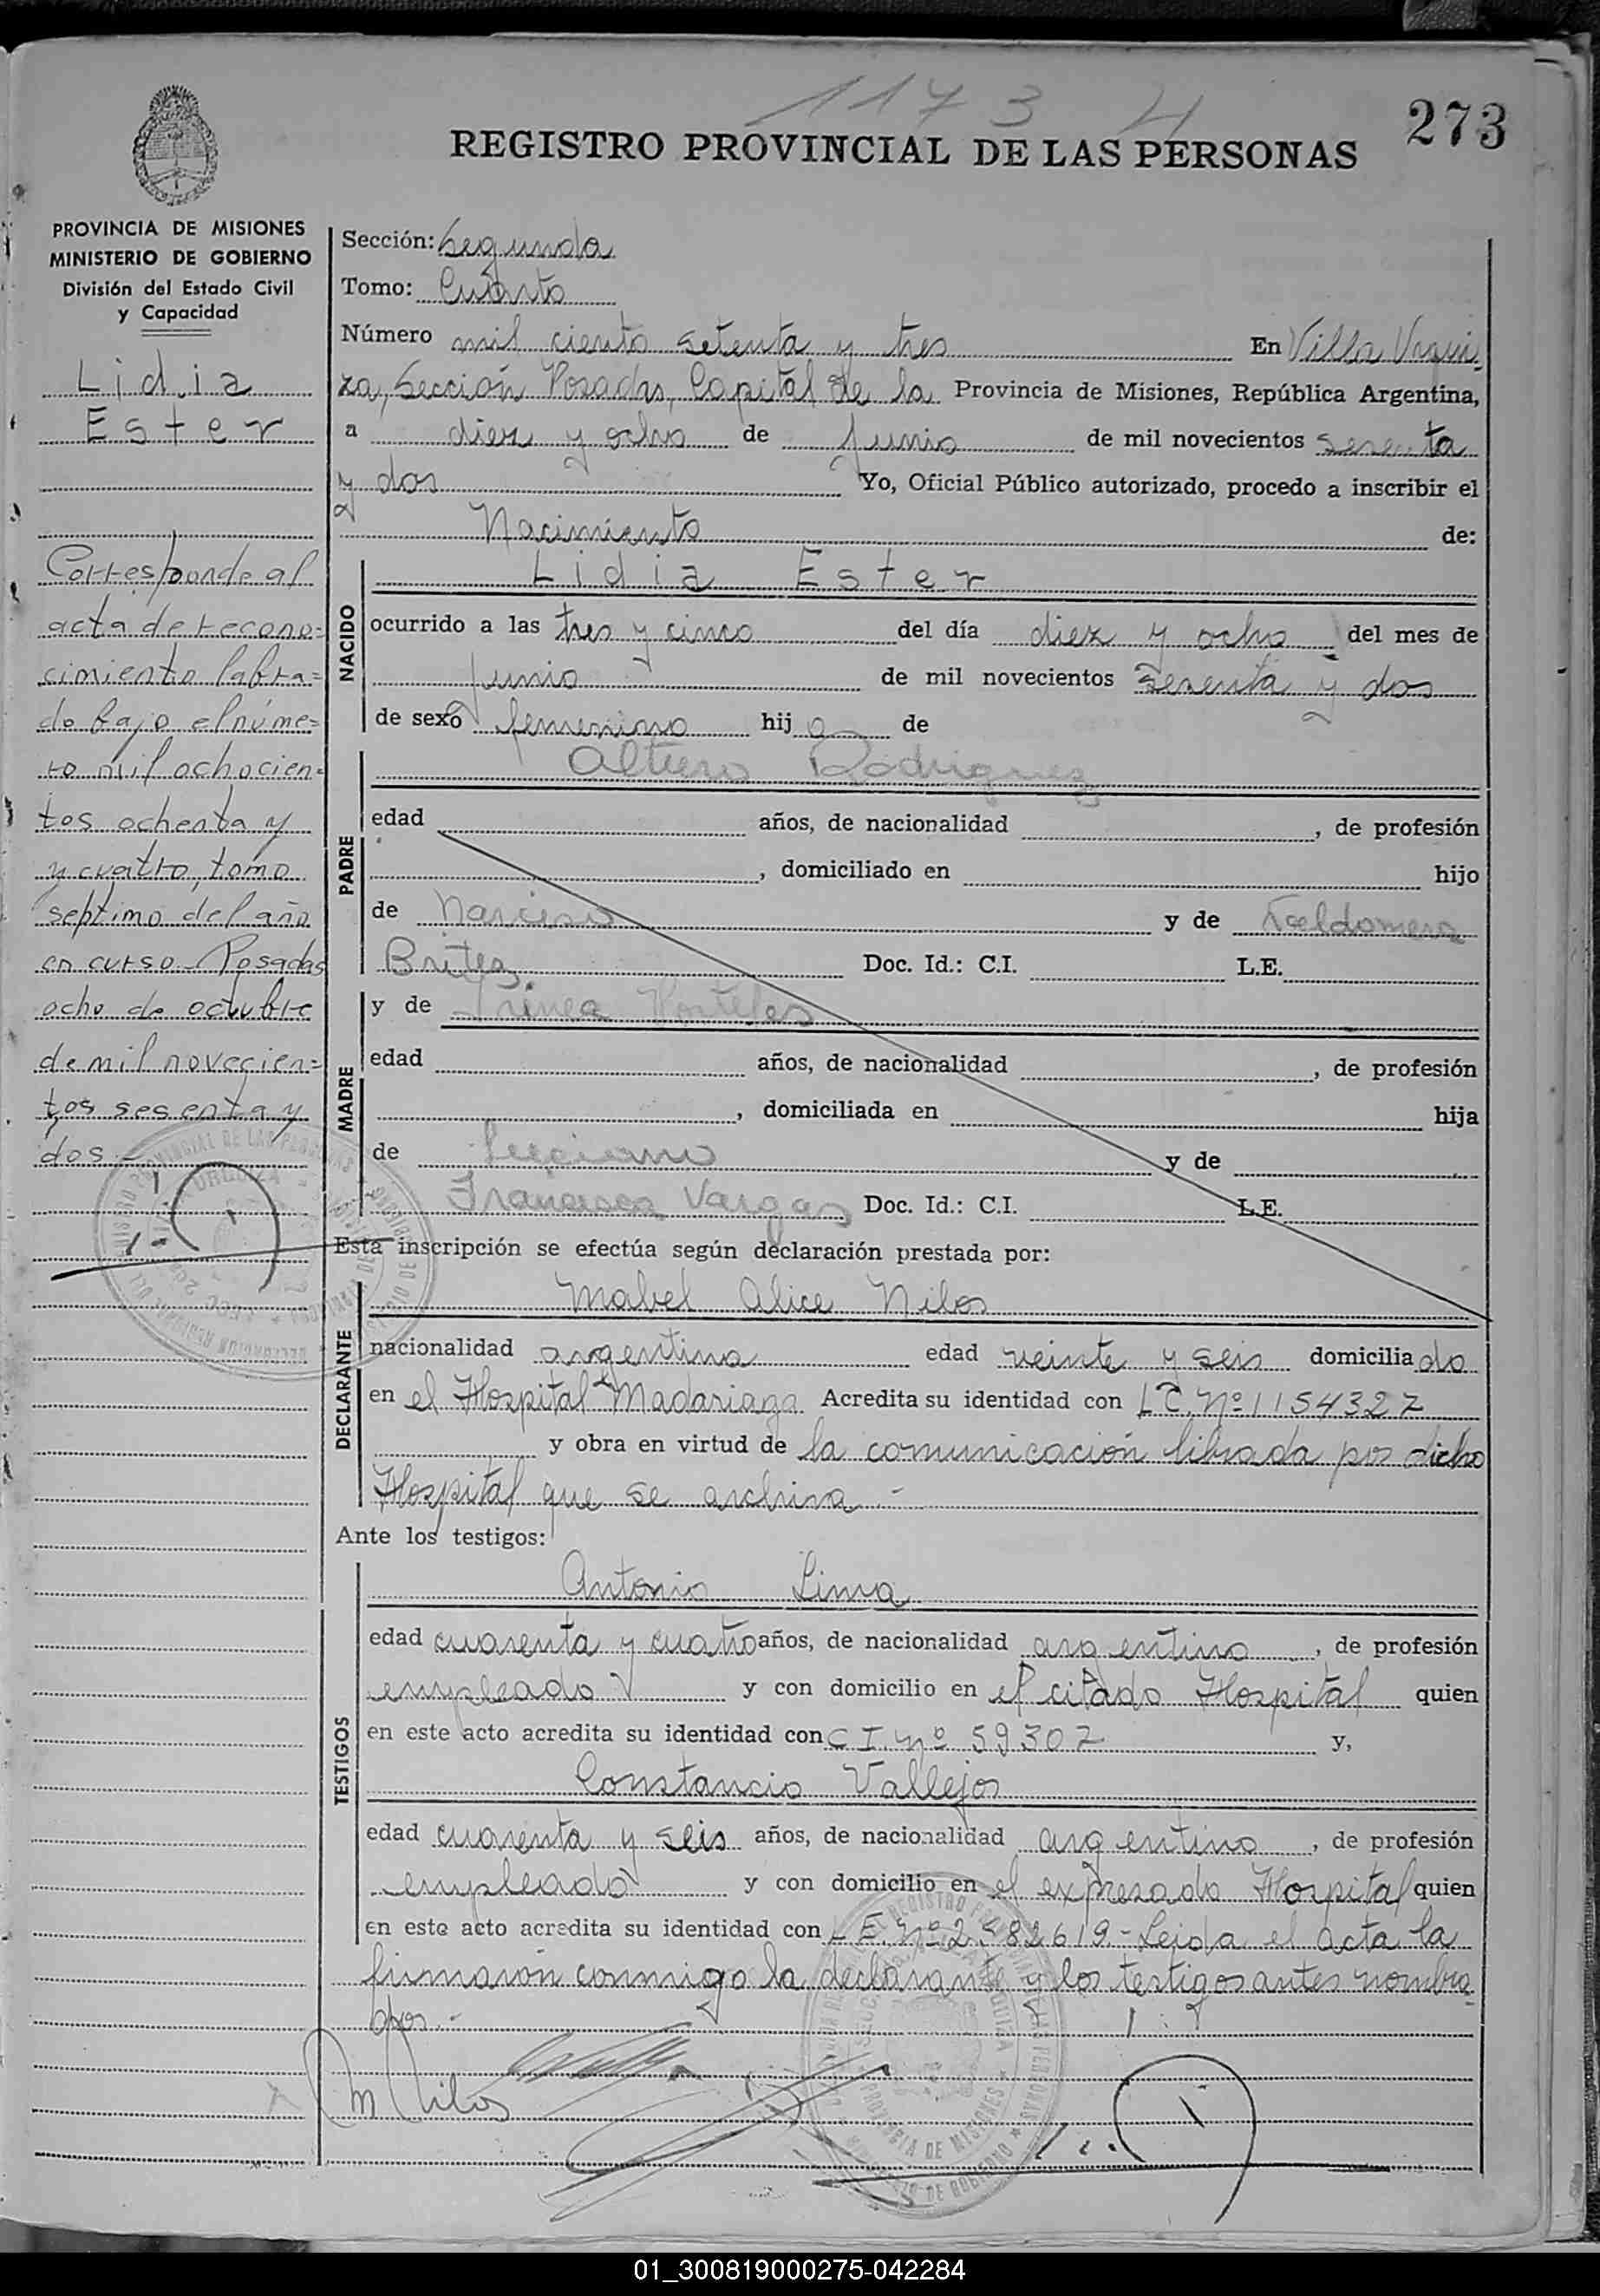 1173 4
273
REGISTRO PROVINCIAL DE LAS PERSONAS
PROVINCIA DE MISIONES
MINISTERIO DE GOBIERNO
División del Estado Civil
y Capacidad
Lidia
Ester
Corresponde al
acta de recono=
cimiento labra=
do bajo el núme=
ro mil ochocien=
tos ochenta y
y cuatro, tomo
septimo del año
en curso - Posadas
ocho de octubre
de mil novecien=
tos sesenta y
dos -
Sección: Segunda
Tomo: Cuarto
Número mil ciento setenta y tres En Villa Urqui
za, Sección Posadas, Capital de la Provincia de Misiones, República Argentina,
a diez y ocho de junio de mil novecientos sesenta
y dos Yo, Oficial Público autorizado, procedo a inscribir el
Nacimiento de:
NACIDO
Lidia Ester
ocurrido a las tres y cinco del día diez y ocho del mes de
junio de mil novecientos sesenta y dos
de sexo femenino hij a de
PADRE
Rodriguez
edad años, de nacionalidad , de profesión
, domiciliado en hijo
de Narciso y de
Britez Doc. Id.: C.I. L.E.
y de
MADRE
edad años, de nacionalidad , de profesión
, domiciliada en hija
de Luciano y de
Francisca Vargas Doc. Id.: C.I. L.E.
Esta inscripción se efectúa según declaración prestada por:
DECLARANTE
Mabel Alice Nilos
nacionalidad argentina edad veinte y seis domicilia do
en el Hospital Madariaga Acredita su identidad con L C. Nº 1154327
y obra en virtud de la comunicación librada por dicho
Hospital que se archiva -
Ante los testigos:
TESTIGOS
Antonio Lima
edad cuarenta y cuatro años, de nacionalidad argentino , de profesión
empleado y con domicilio en el citado Hospital quien
en este acto acredita su identidad con C I. nº 59307 y,
Constancio Vallejos
edad cuarenta y seis años, de nacionalidad argentino , de profesión
empleado y con domicilio en el expresado Hospital quien
en este acto acredita su identidad con L E. nº 2582619 - Leida el acta la
firmaron conmigo la declarante y los testigos antes nombra
dos -
M Nilos
01_300819000275-042284